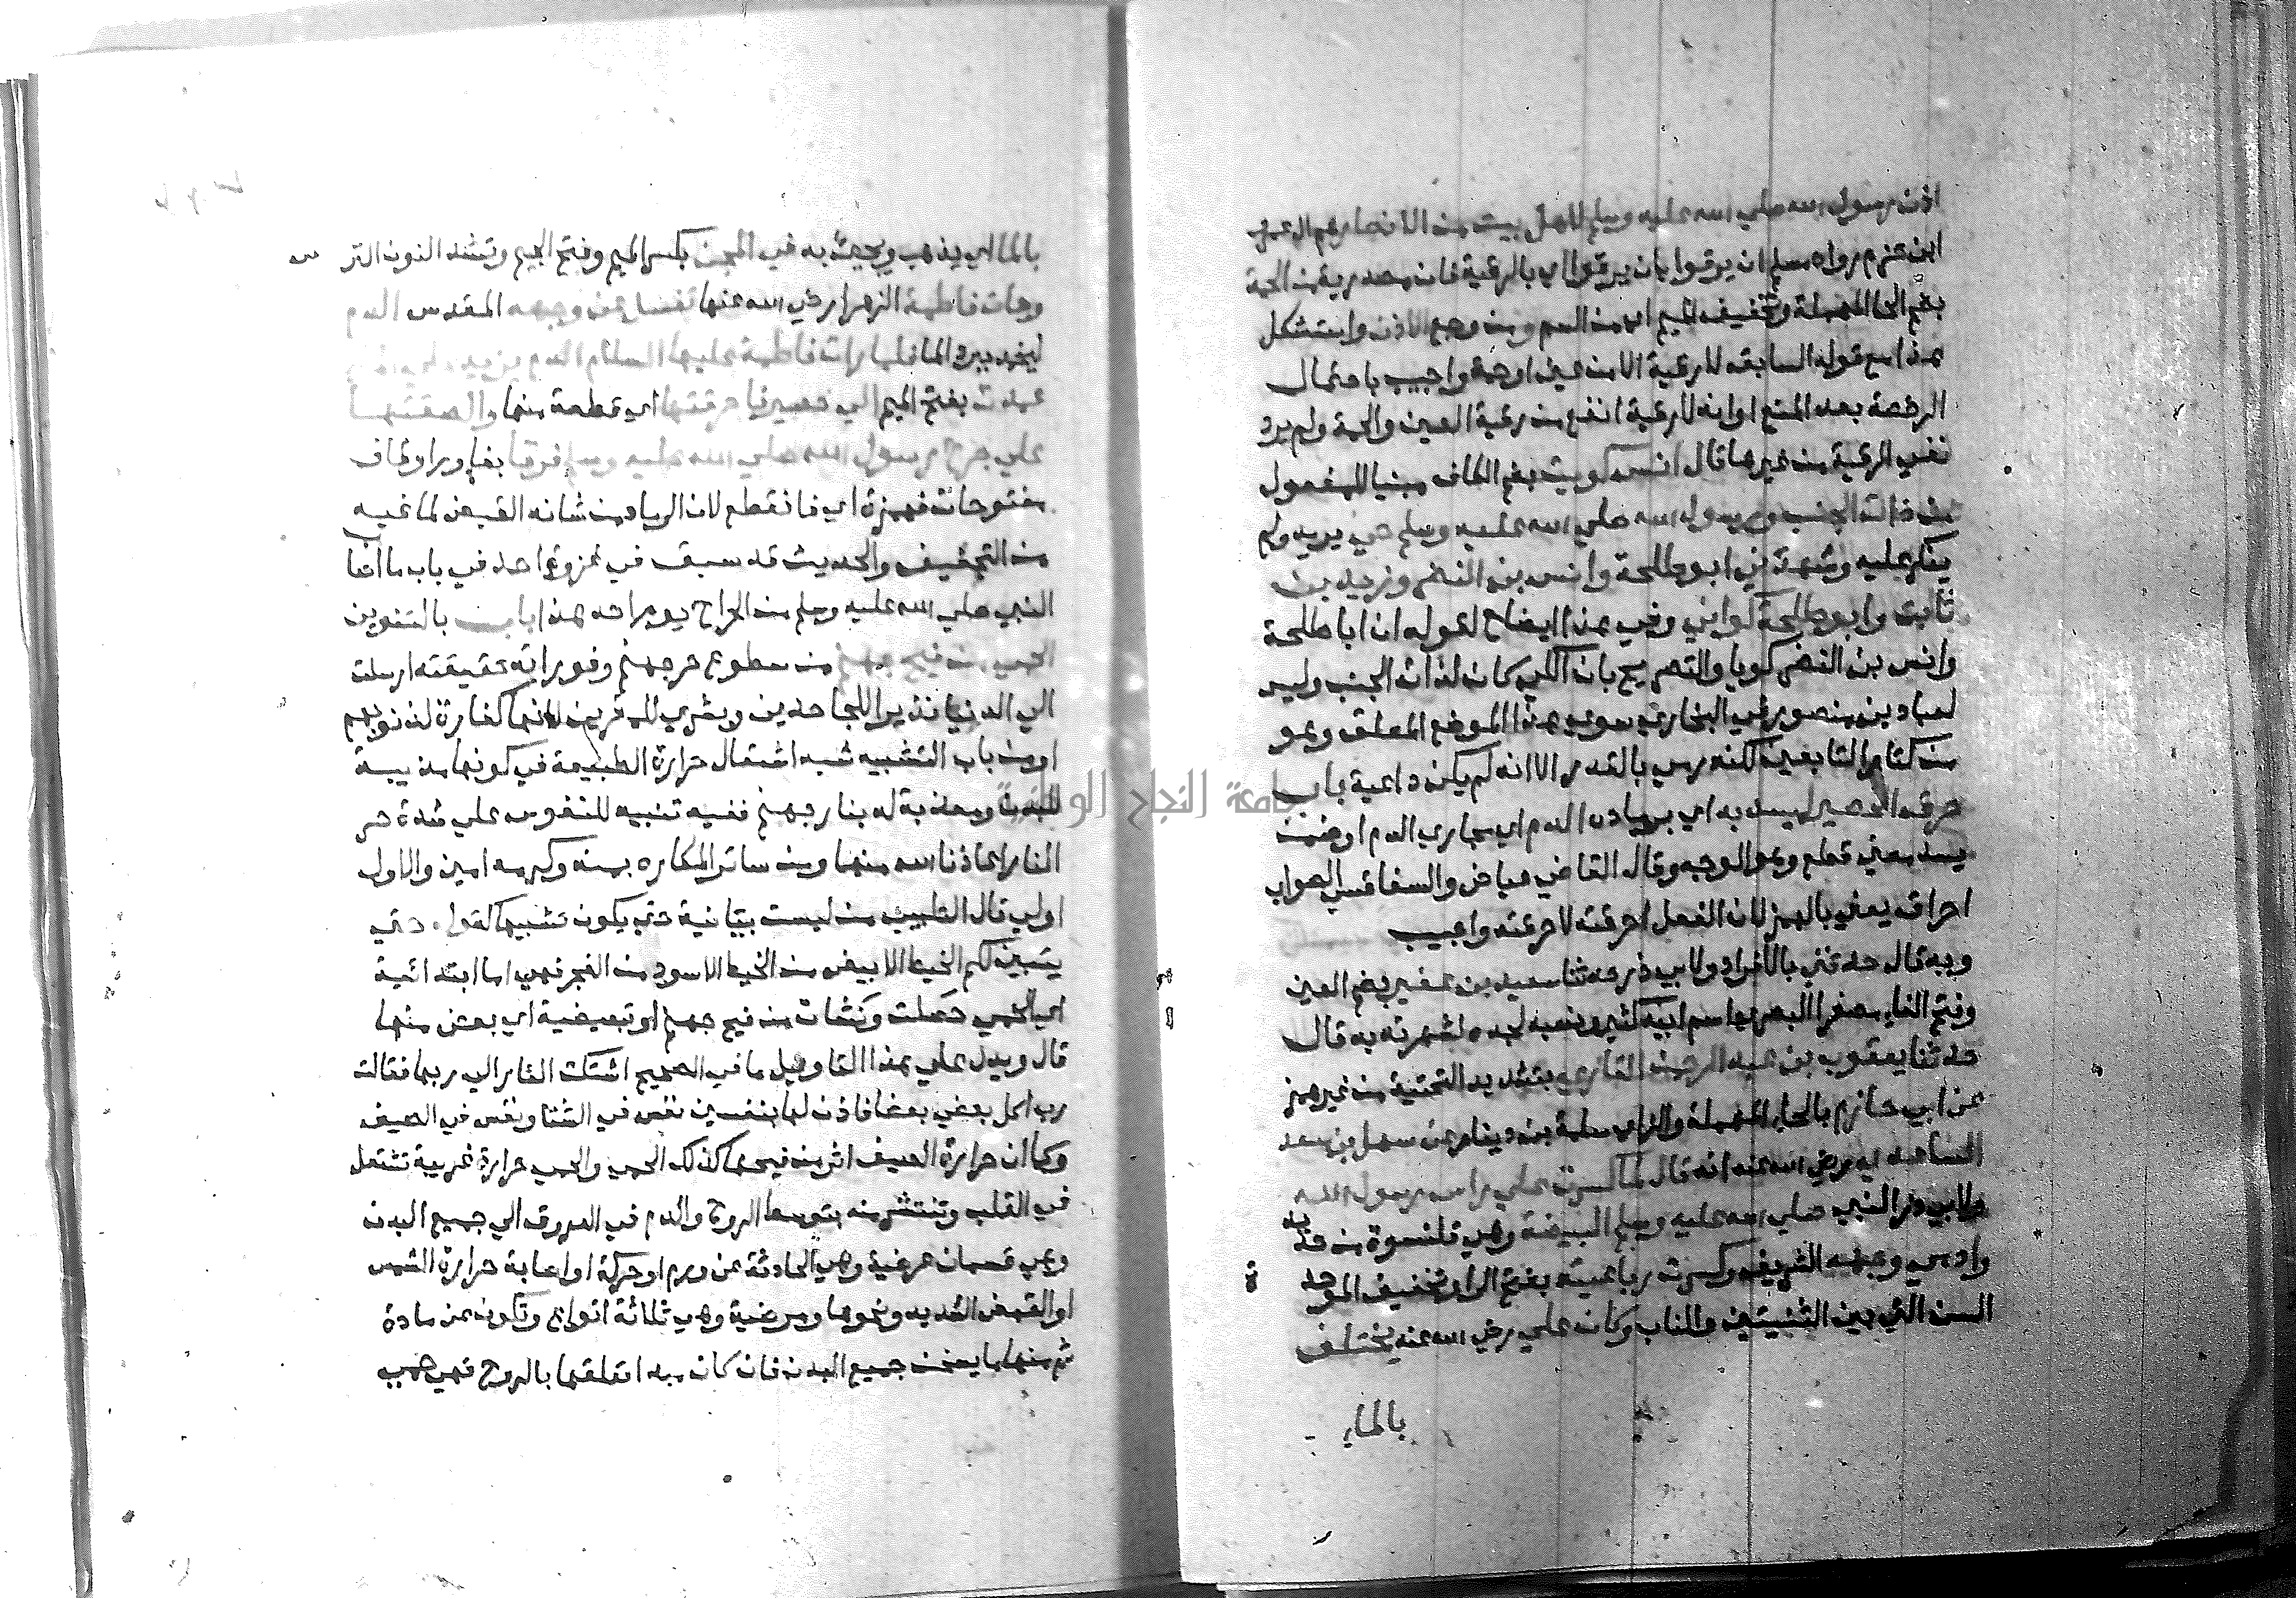 اذن رسول الله صلي الله عليه وسلم لاهل بيت من الانصار هم ال عمرو
ابن حزم رواه مسلم ان يرقوا بان يرقوا اي بالرقية فان مصدرية من الحمة
بضم الحا المهملة وتخفيف الميم اي من السم ومن وجع الاذن واستشكل
هذا مع قوله السابق لا رقية الا من عين او حمة واجيب باحتمال
الرخصة بعد المنع او انه لا رقية انفع من رقية العين والحمة ولم يرد
نفي الرقية من غيرها قال انس كويت بضم الكاف مبنيا للمفعول
من ذات الجنب ورسول الله صلي الله عليه وسلم حي يريد ولم
ينكر عليه وشهدني ابو طلحة وانس بن النضر وزيد بن
ثابت وابو طلحة كواني وفي هذا ايضاح لقوله ان ابا طلحة
وانس بن النضر كويا والتصريح بان الكي كان لذات الجنب وليس
لعباد بن منصور في البخاري سوي هذا الموضع المعلق وهو
من كبار التابعين لكنه رمي بالقدر الا انه لم يكن داعية باب
حرق الحصير ليسد به اي برماده الدم اي مجاري الدم او ضمن
يسد معني قطع وهو الوجه وقال القاضي عياض والسفاقسي الصواب
احراق يعني بالهمز لان الفعل احرقته لا حرقته واجيب
وبه قال حدثني بالافراد ولابي ذر حدثنا سعيد بن عفير بضم العين
وفتح الفاء مصغرا البصري اسم ابيه كثير ونسبه لجده لشهرته به قال
حدثنا يعقوب بن عبد الرحمن القاري بتشديد التحتية من غير همز
عن ابي حازم بالحاء المهملة والزاي سلمة بن دينار عن سهل بن سعد
الساعدي رضي الله عنه انه قال لما كسرت علي راس رسول الله
ولابي ذر النبي صلي الله عليه وسلم البيضة وهي قلنسوة من حديد
وادمي وجهه الشريف وكسرت رباعيته بفتح الراء وتخفيف الموحدة
السن التي بين الثنيتين والناب وكان علي رضي الله عنه يختلف
بالماء
بالماء اي يذهب ويجيث به في المجن بكسر الميم وفتح الجيم وتشد النون الترس
وجات فاطمة الزهرا رضي الله عنها تغسل عن وجهه المقدس الدم
ليخمد ببرد الما فلما رات فاطمة عليها السلام الدم يزيد علي
عمدت بفتح الميم الي حصير فاحرقتها اي قطعة منها والصقتها
علي جرح رسول الله صلي الله عليه وسلم فرقا بفاء وراء وقاف
مفتوحات فهمزة اي فانقطع لان الرماد من شانه القبض لما فيه
من التجفيف والحديث قد سبق في غزوة احد في باب ما اصاب
النبي صلي الله عليه وسلم من الجراح يوم احد هذا باب بالتنوين
الحمي من فيح جهنم من سطوع حر جهنم وفورانه حقيقته ارسلت
الي الدنيا نذيرا للجاحدين وبشري للمقربين لانها كفارة لذنوبهم
او من باب التشبيه شبه اشتعال حرارة الطبيعة في كونها مذيبة
للبدن ومعذبة له بنار جهنم ففيه تنبيه للنفوس علي شدة حر
النار اعاذنا الله منها ومن سائر المكاره بمنه وكرمه امين والاول
اولي قال الطيبي من ليست بيانية حتي يكون تشبيها كقوله حتي
يتبين لكم الخيط الابيض من الخيط الاسود من الفجر فهي اما ابتدائية
اي الحمي حصلت ونشات من فيح جهنم او تبعيضية اي بعض منها
قال ويدل علي هذا التاويل ما في الصحيح اشتكت النار الي ربها فقالت
رب اكل بعضي بعضا فاذن لها بنفسين نفس في الشتا ونفس في الصيف
وكما ان حرارة الصيف اثر من فيحها كذلك الحمي والحمي حرارة غريبة تشتعل
في القلب وتنتشر منه بتوسط الروح والدم في العروق الي جميع البدن
وهي قسمان عرضية وهي الحادثة عن ورم او حركة او اصابة حرارة الشمس
او القبض الشديد ونحوها ومرضية وهي ثلاثة انواع وتكون عن مادة
ثم منها ما يسخن جميع البدن فان كان مبدا تعلقها بالروح فهي حمي
جامعة النجاح الوطنية